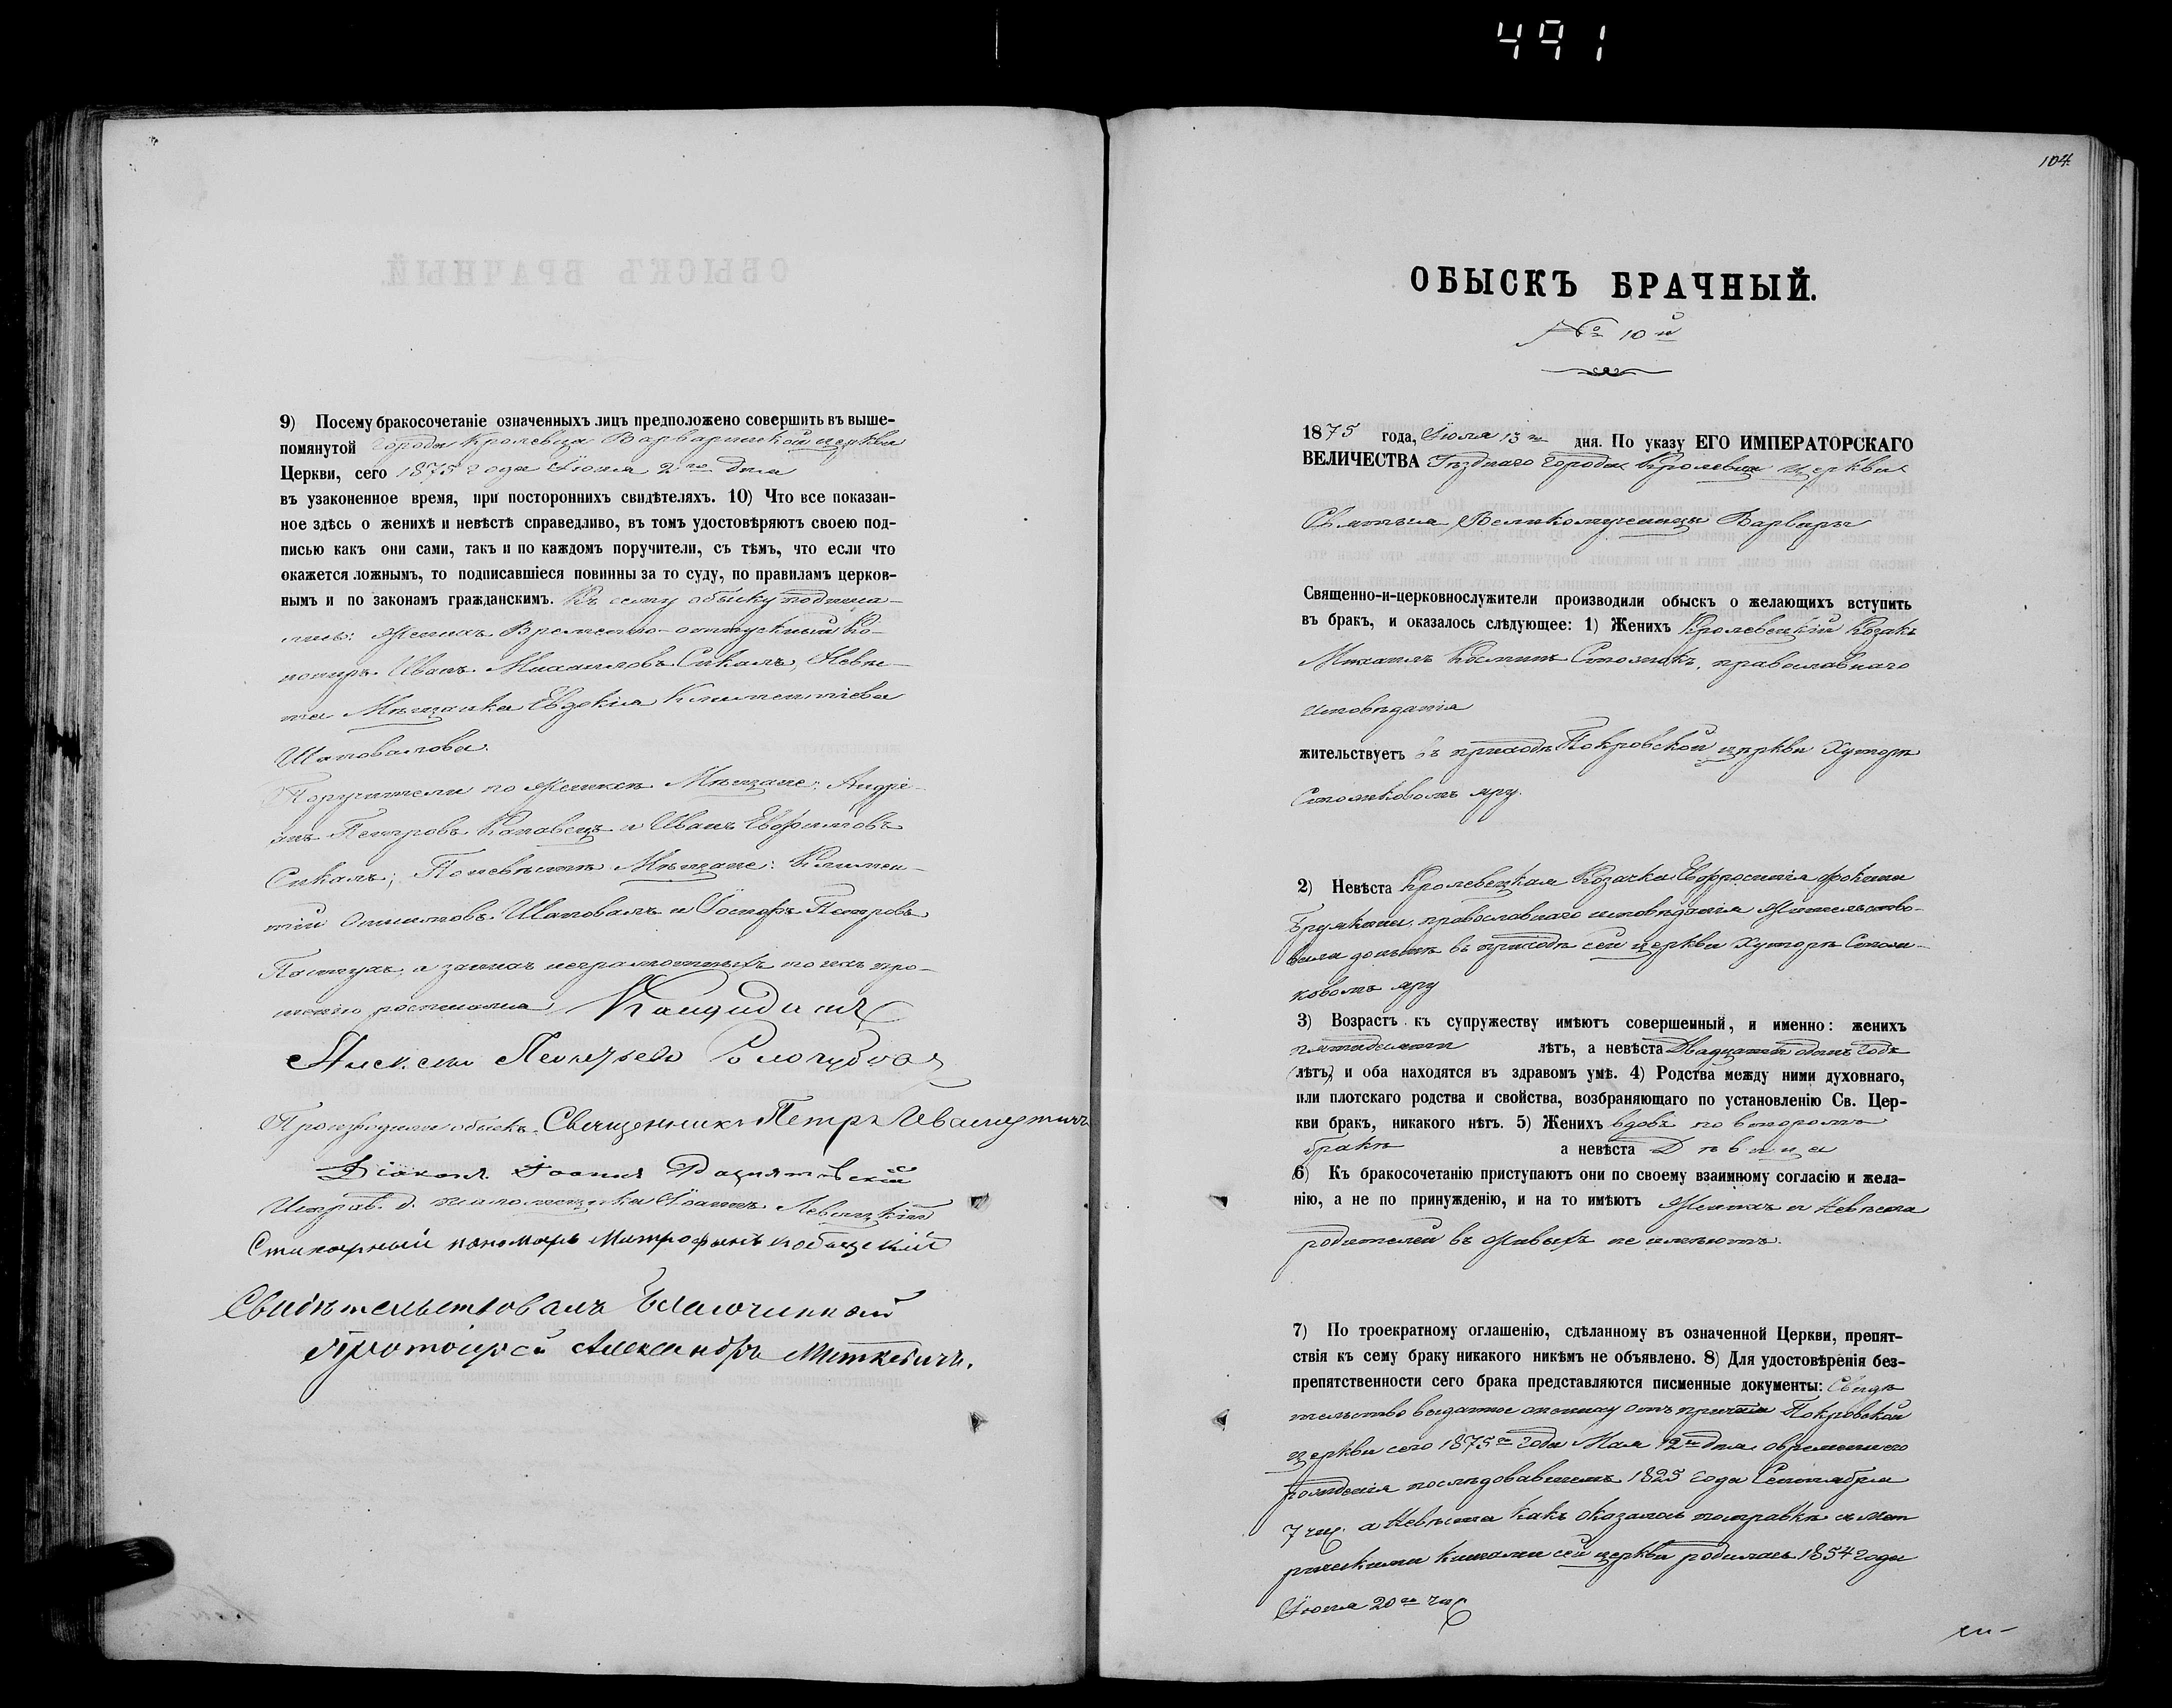 491
9) Посему бракосочетаніе означенныхъ лицъ предположено совершить въ выше-
помянутой города Кролевца Варваринской церкви
Церкви, сего 1875 года Іюня 2го дня
въ узаконенное время, при постороннихъ свидѣтеляхъ. 10) Что все показан-
ное здѣсь о женихѣ и невѣстѣ справедливо, въ томъ удостовѣряютъ своею под-
писью какъ они сами, такъ и по каждомъ поручители, съ тѣмъ, что если что
окажется ложнымъ, то подписавшіеся повинны за то суду, по правиламъ церков-
нымъ и по законамъ гражданскимъ. Къ сему обыску подписа-
лись: Женихъ Временно-отпускный
Иванъ Михаиловъ Сикалъ, Невѣс-
та Мѣщанка Евдокія Климентіева
Шаповалова.
Поручители по женихѣ Мѣщане: Андре-
Петровъ и Иванъ Евфимовъ
Сикалъ; По невѣстѣ Мѣщане: Климен-
тій Шаповалъ и Іосифъ Петровъ
Пастухъ, а за нихъ неграмотныхъ по ихъ про-
шенію росписался Кандидатъ
Алексей
Производили обыскъ: Священникъ Петръ
Діаконъ Іоаннъ
Исправ. д. псаломщика Іоаннъ Левицкій
Стихарный пономарь Митрофанъ
Свидѣтельствовалъ Благочинный
Протоіерей Александръ Миткевичъ.
104
ОБЫСКЪ БРАЧНЫЙ.
№ 10й
1875 года, Іюля 13го дня. По указу ЕГО ИМПЕРАТОРСКАГО
ВЕЛИЧЕСТВА Уѣзднаго города Кролевца церкви
Святыя Великомученицы Варвары
Священно-и-церковнослужители производили обыскъ о желающихъ вступить
въ бракъ, и оказалось слѣдующее: 1) Женихъ Кролевецкій Козакъ
Михаилъ Козминъ православнаго
исповѣданія
жительствуетъ въ приходѣ Покровской церкви Хуторѣ
яру.
2) Невѣста Кролевецкая Козачка Евфросинія Фокина
православнаго исповѣданія жительство-
вала донынѣ въ приходѣ сей церкви Хуторѣ
ковомъ яру
3) Возрастъ къ супружеству имѣютъ совершенный, и именно: женихъ
пятидесяти лѣтъ, а невѣста двадцати одинъ годъ
(лѣтъ) и оба находятся въ здравомъ умѣ. 4) Родства между ними духовнаго,
или плотскаго родства и свойства, возбраняющаго по установленію Св. Цер-
кви бракъ, никакого нѣтъ. 5) Женихъ вдовъ по второмъ
бракѣ а невѣста Дѣвица
6) Къ бракосочетанію приступаютъ они по своему взаимному согласію и жела-
нію, а не по принужденію, и на то имѣютъ Женихъ и невѣста
родителей въ живыхъ не имѣютъ.
7) По троекратному оглашенію, сдѣланному въ означенной Церкви, препят-
ствія къ сему браку никакого никѣмъ не объявлено. 8) Для удостовѣренія без-
препятственности сего брака представляются писменные документы: Свидѣ
тельство выданное жениху отъ причта Покровской
церкви сего 1875го года Мая 12го дня о времени его
рожденія послѣдовавшемъ 1825 года Сентября
7 чис. а Невѣста какъ оказалось по справкѣ съ мет
рическими книгами сей церкви родилась 1854 года
Іюня 20го чис.